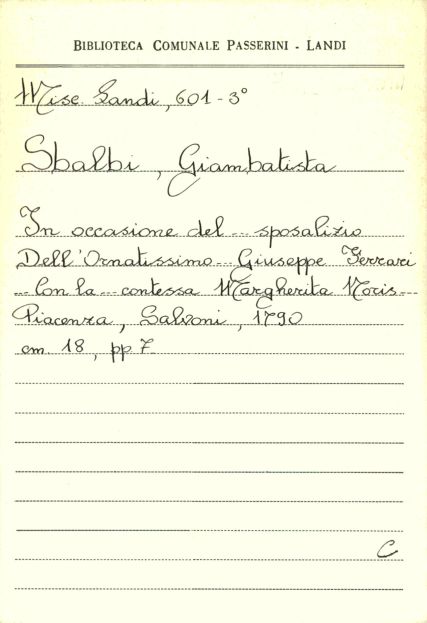 BIBLIOTECA COMUNALE PASSERINI - LANDI
Misc. Landi, 601-3°
Sbalbi, Giambatista
In occasione del ... sposalizio
Dell'Ornatissimo ... Giuseppe Ferrari
... Con la ... contessa Margherita Moris ...
Piacenza, Salvoni, 1790
cm. 18, pp. 7
C